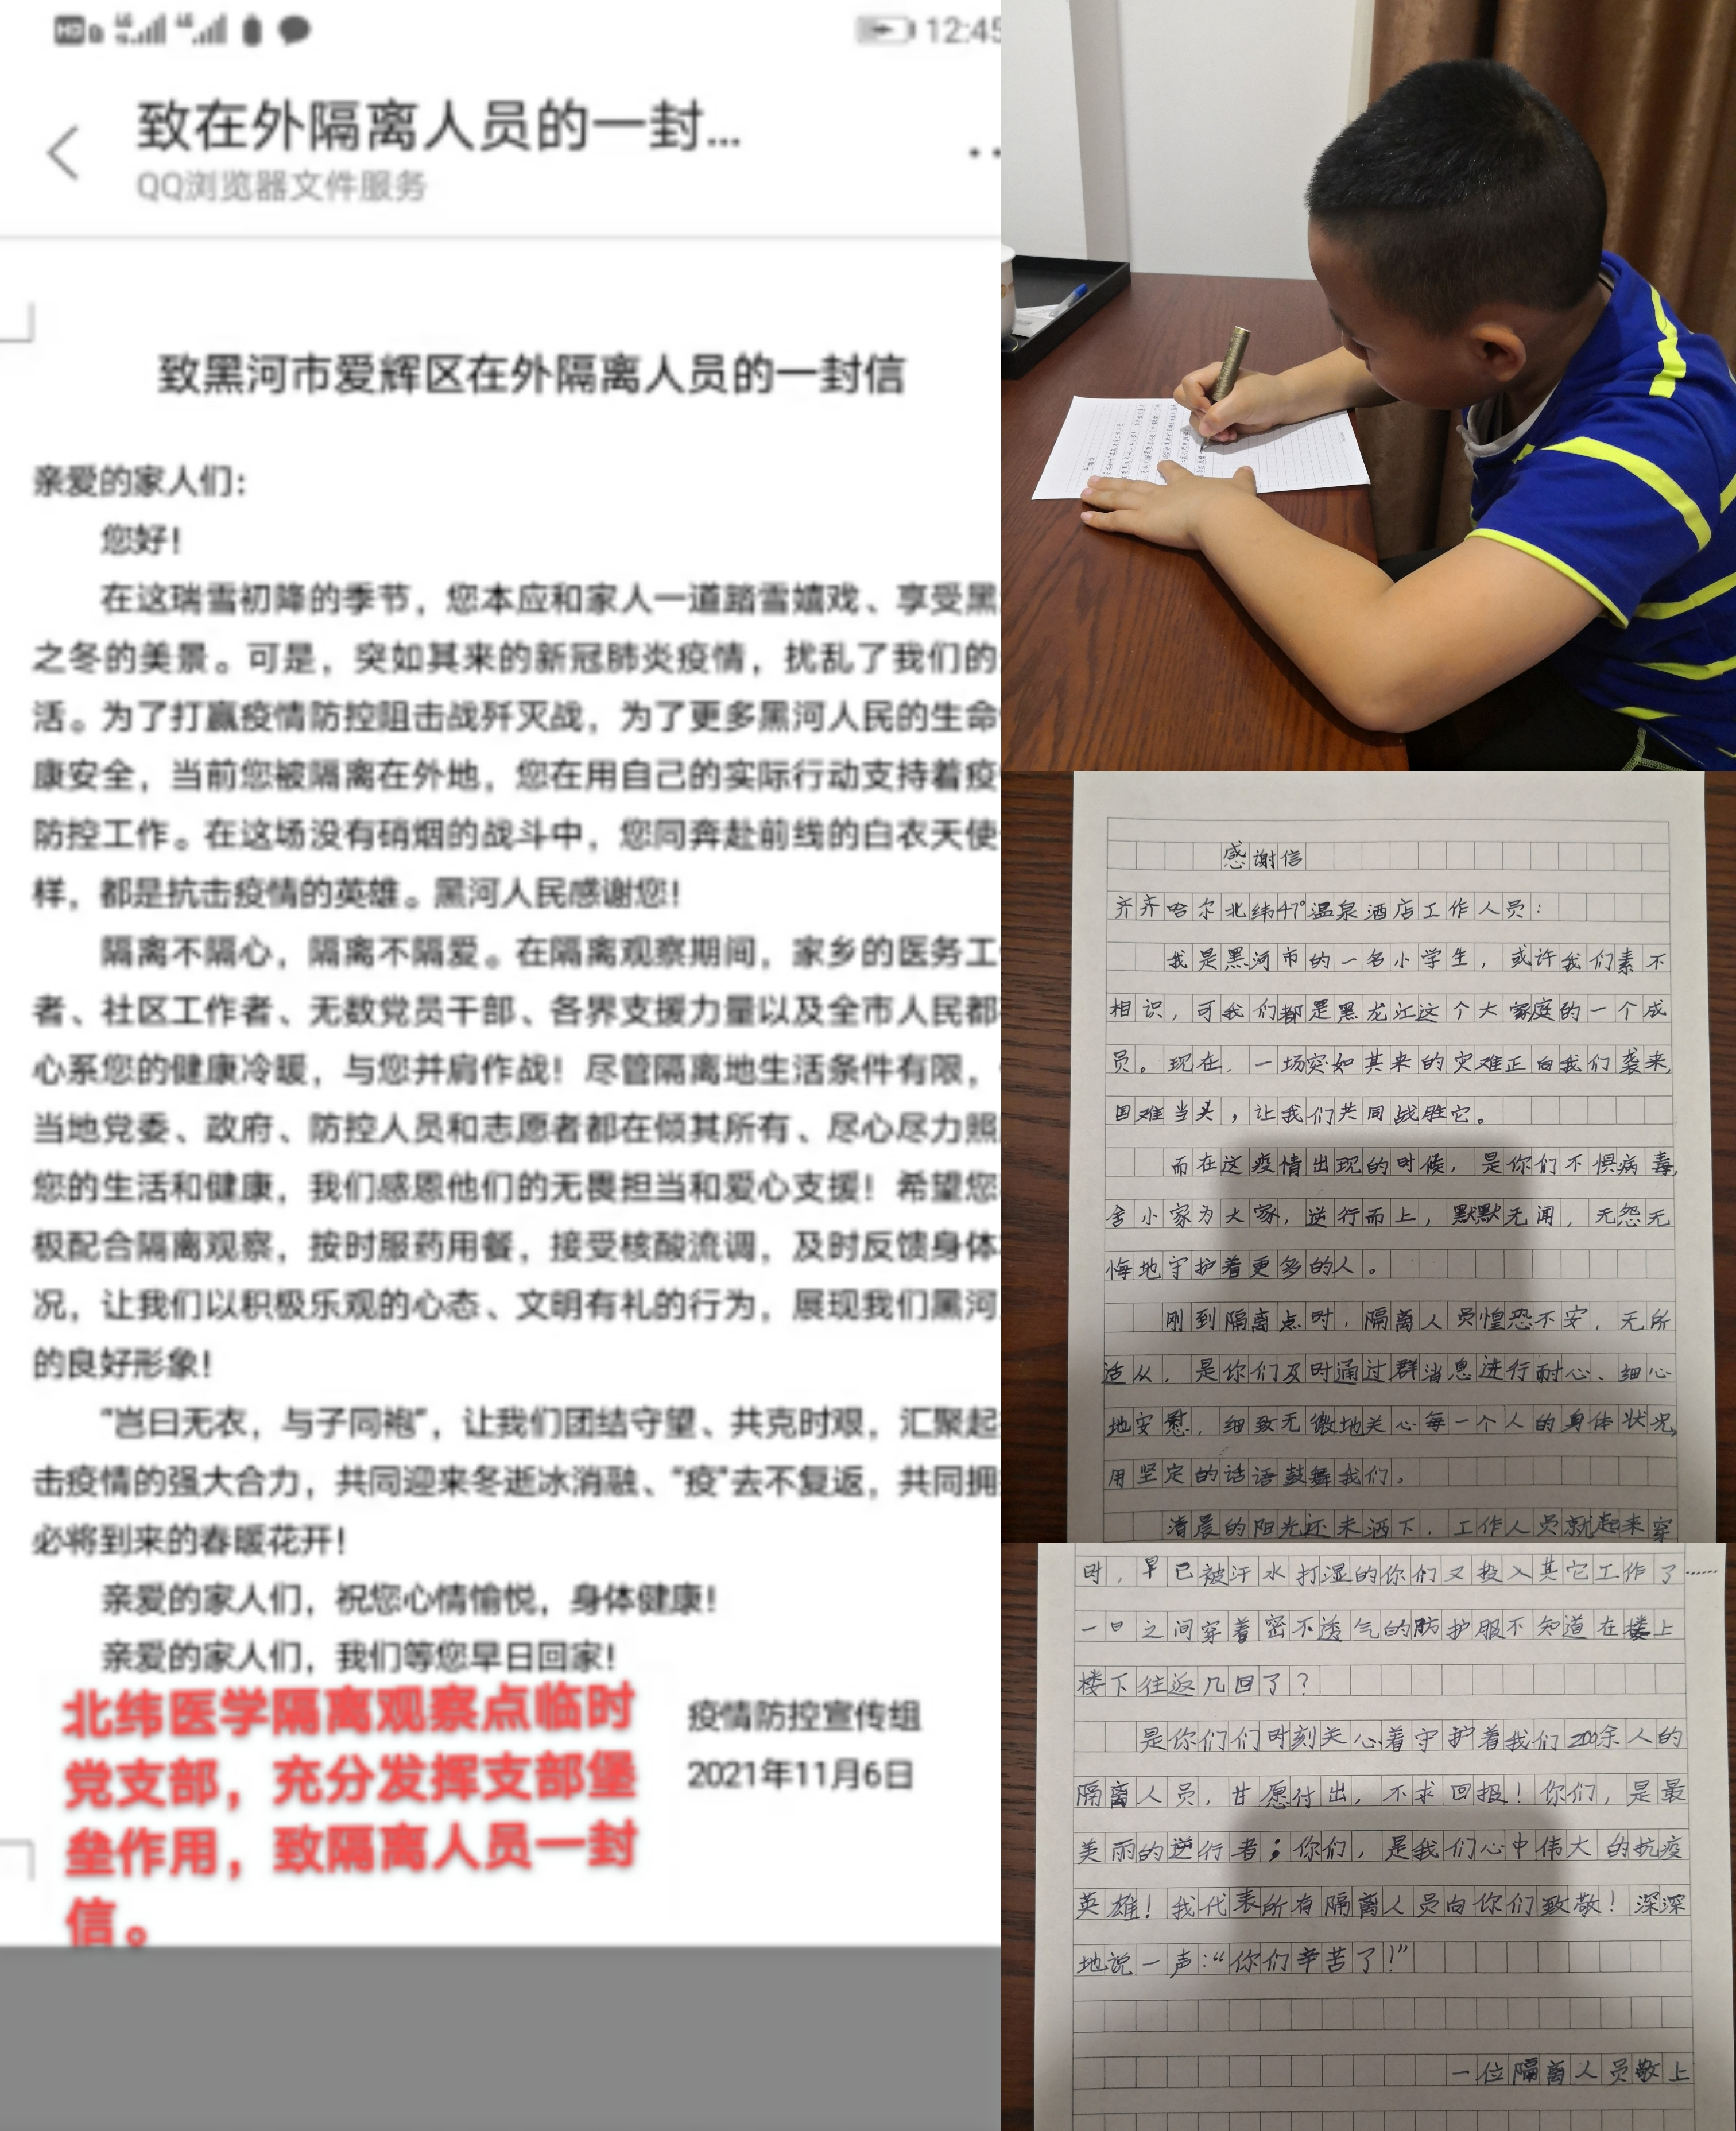 12:45
致在外隔离人员的一封...
QQ浏览器文件服务
致黑河市爱辉区在外隔离人员的一封信
亲爱的家人们：
您好！
在这瑞雪初降的季节，您本应和家人一道踏雪嬉戏、享受黑
之冬的美景。可是，突如其来的新冠肺炎疫情，扰乱了我们的
活。为了打赢疫情防控阻击战歼灭战，为了更多黑河人民的生命
康安全，当前您被隔离在外地，您在用自己的实际行动支持着疫
防控工作。在这场没有硝烟的战斗中，您同奔赴前线的白衣天使
样，都是抗击疫情的英雄。黑河人民感谢您！
隔离不隔心，隔离不隔爱。在隔离观察期间，家乡的医务工
者、社区工作者、无数党员干部、各界支援力量以及全市人民都
心系您的健康冷暖，与您并肩作战！尽管隔离地生活条件有限，
当地党委、政府、防控人员和志愿者都在倾其所有、尽心尽力照
您的生活和健康，我们感恩他们的无畏担当和爱心支援！希望您
极配合隔离观察，按时服药用餐，接受核酸流调，及时反馈身体
况，让我们以积极乐观的心态、文明有礼的行为，展现我们黑河
的良好形象！
“岂曰无衣，与子同袍”，让我们团结守望、共克时艰，汇聚起
击疫情的强大合力，共同迎来冬逝冰消融、“疫”去不复返，共同拥
必将到来的春暖花开！
亲爱的家人们，祝您心情愉悦，身体健康！
亲爱的家人们，我们等您早日回家！
疫情防控宣传组
2021年11月6日
北纬医学隔离观察点临时
党支部，充分发挥支部堡
垒作用，致隔离人员一封
信。
感谢信
齐齐哈尔北纬47°温泉酒店工作人员：
我是黑河市的一名小学生，或许我们素不
相识，可我们都是黑龙江这个大家庭的一个成
员。现在，一场突如其来的灾难正向我们袭来，
国难当头，让我们共同战胜它。
而在这疫情出现的时候，是你们不惧病毒，
舍小家为大家，逆行而上，默默无闻，无怨无
悔地守护着更多的人。
刚到隔离点时，隔离人员惶恐不安，无所
适从，是你们及时通过群消息进行耐心、细心
地安慰，细致无微地关心每一个人的身体状况，
用坚定的话语鼓舞我们。
清晨的阳光还未洒下，工作人员就起来穿
时，早已被汗水打湿的你们又投入其它工作了……
一日之间穿着密不透气的防护服不知道在楼上
楼下往返几回了？
是你们们时刻关心着守护着我们200余人的
隔离人员，甘愿付出，不求回报！你们，是最
美丽的逆行者；你们，是我们心中伟大的抗疫
英雄！我代表所有隔离人员向你们致敬！深深
地说一声：“你们辛苦了！”
一位隔离人员敬上